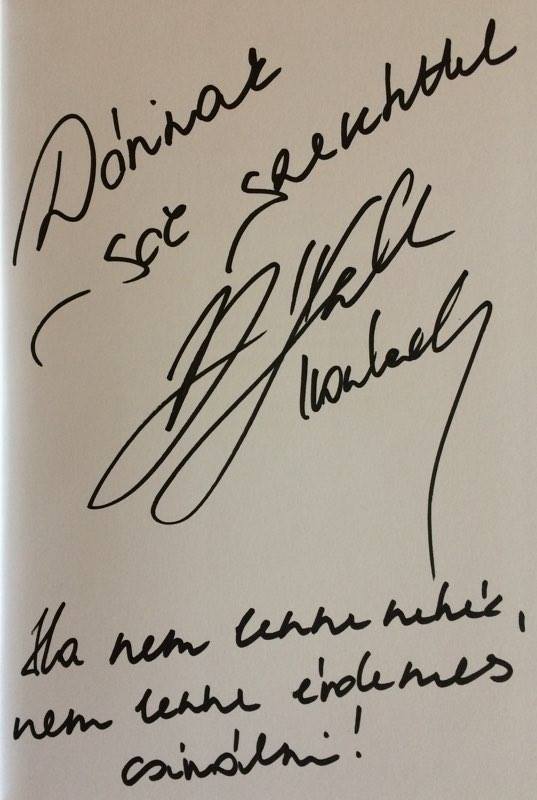 Dórinak
sok szeretettel
Ha nem lenne nehéz,
nem lenne érdemes
csinálni!